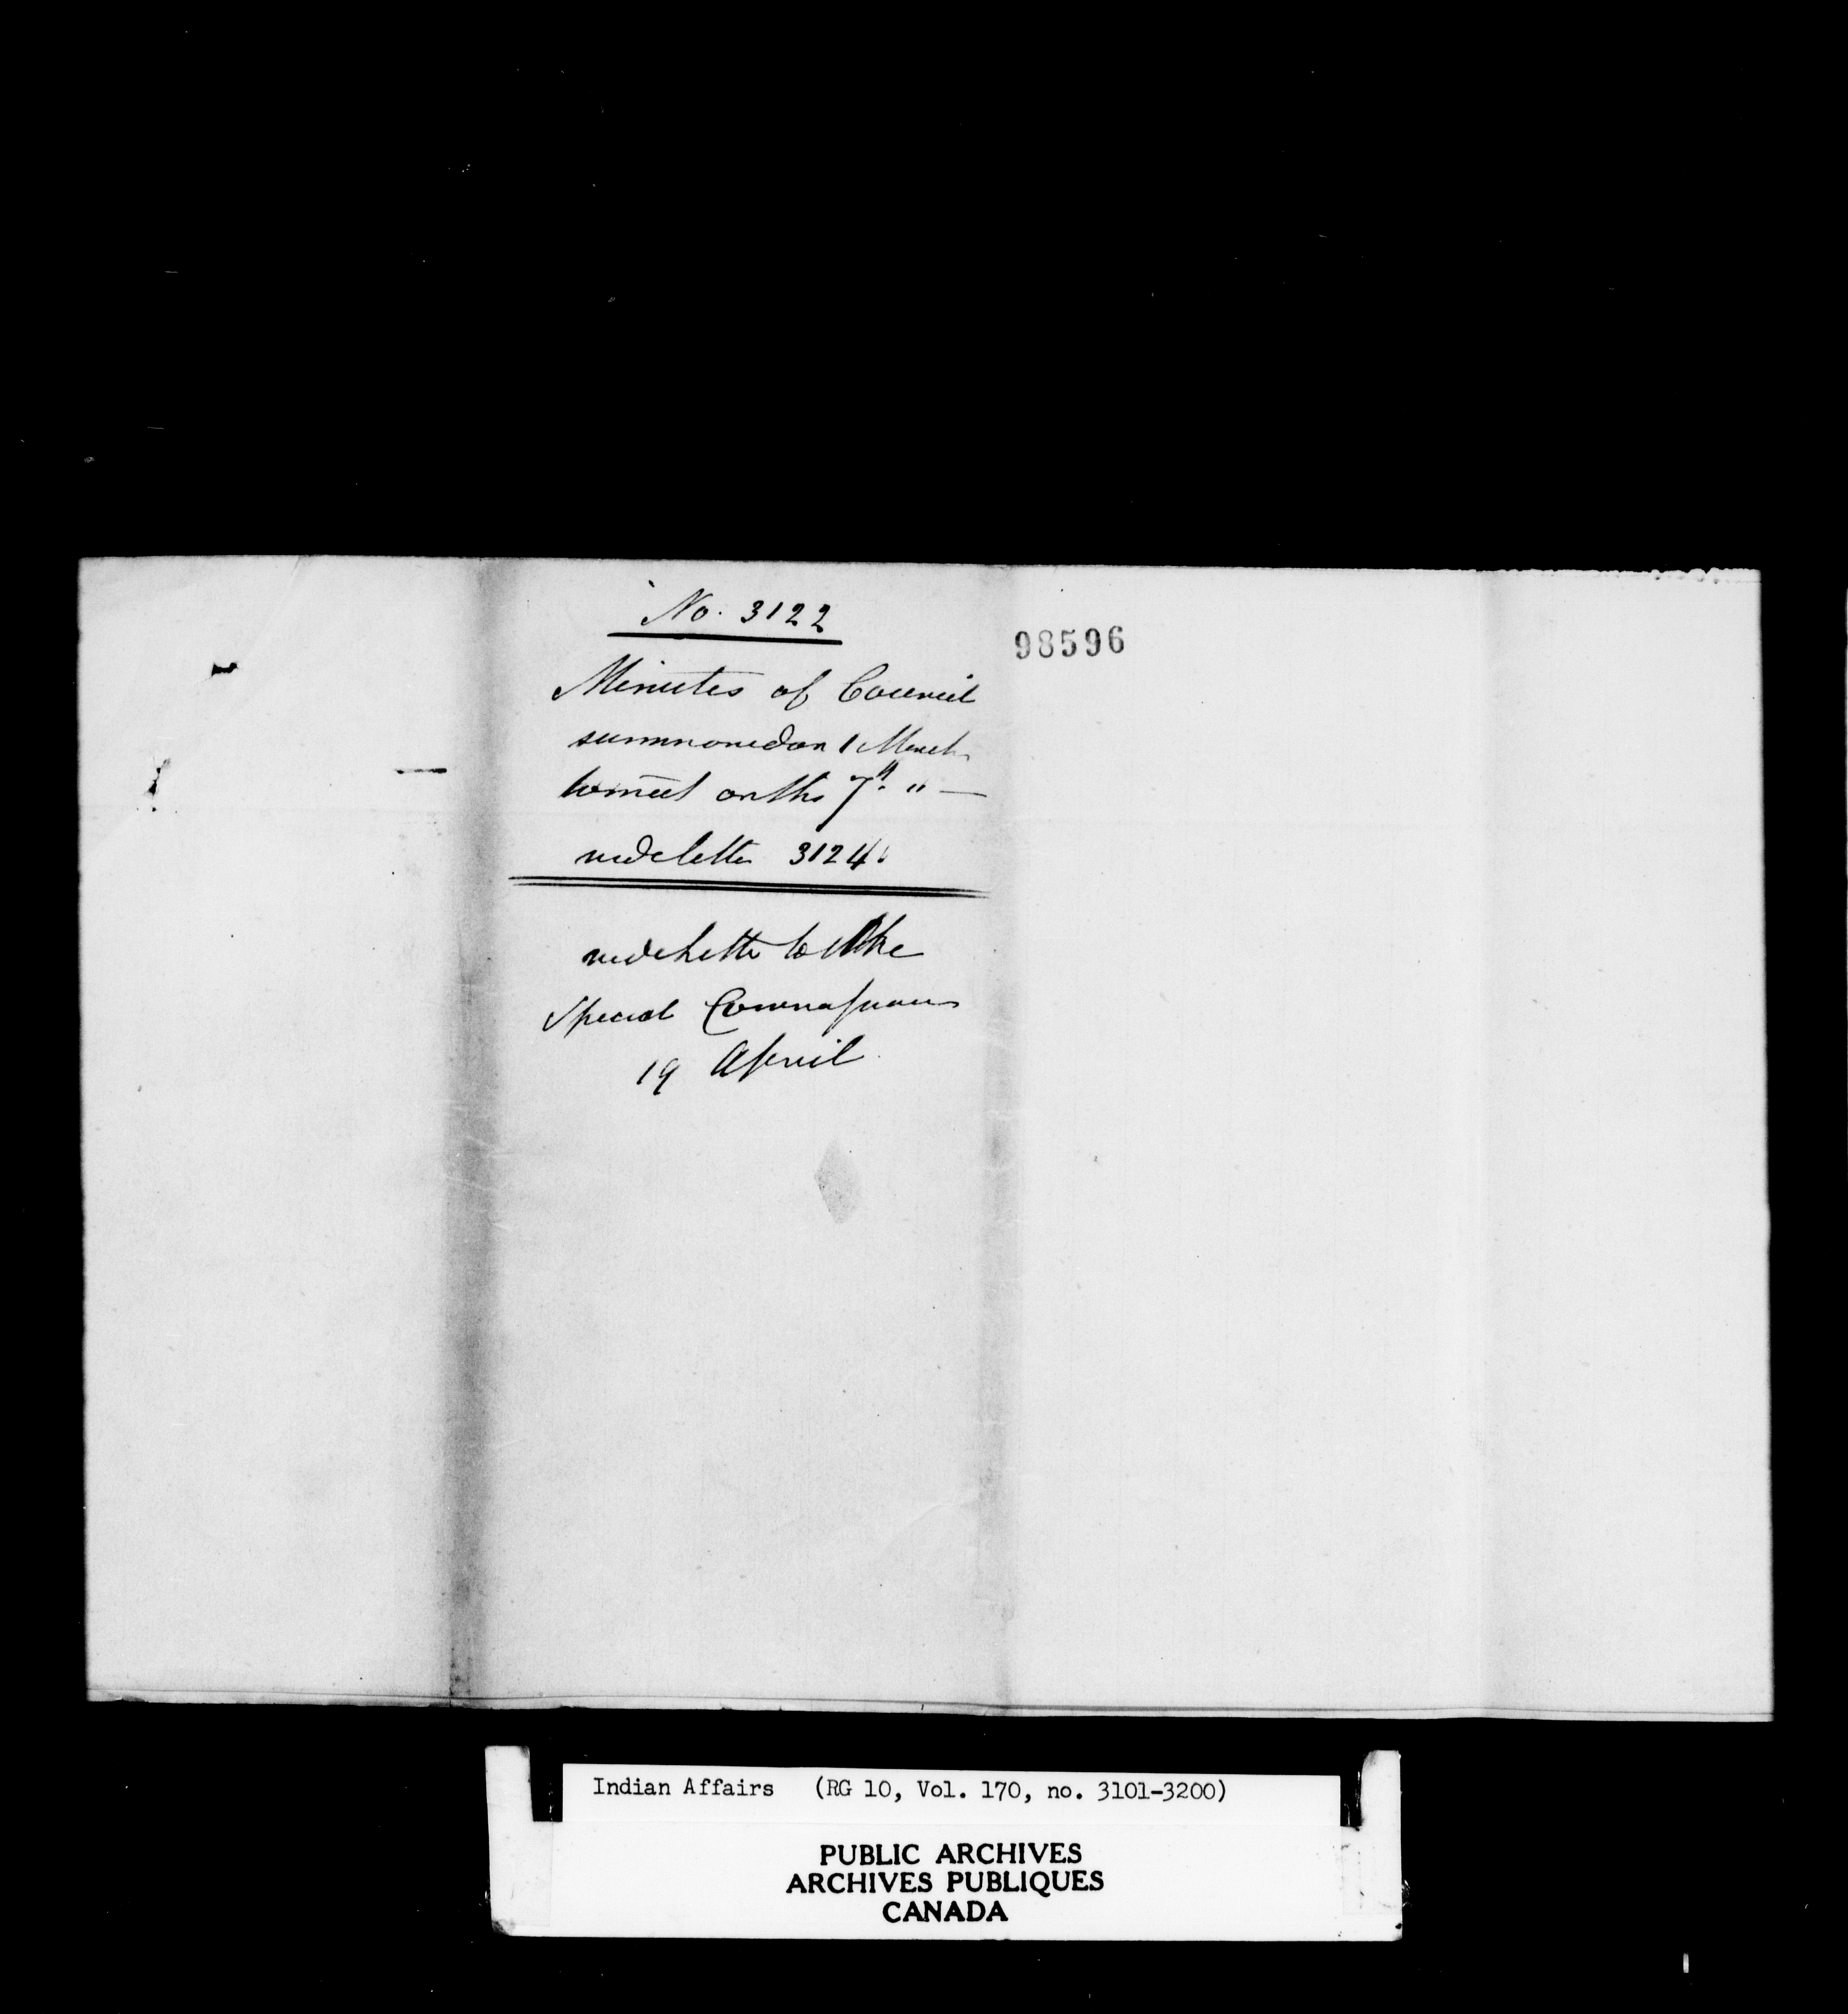 No. 3122
98596
Minutes of Council
summoned on 1 March
to meet on the 7th. "—
vide letter 3124
vide Letter to the
Special Commissioners
19 April
Indian Affairs (RG 10, Vol. 170, no. 3101-3200)
PUBLIC ARCHIVES
ARCHIVES PUBLIQUES
CANADA